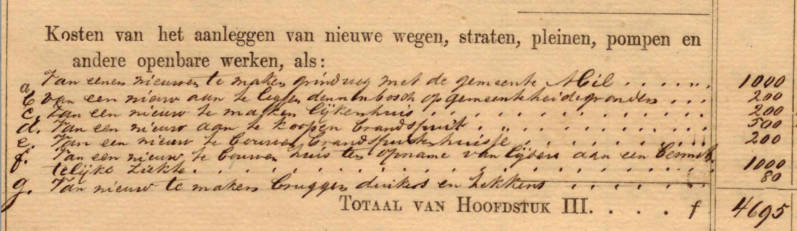 Kosten van het aanleggen van nieuwe wegen, straten, pleinen, pompen en
andere openbare werken, als:
a. Van eenen nieuwen te maken grindweg met de gemeente Mil . . . . . „ 1000
b van een nieuw aan te leggen dennenbosch op gemeenteheidegronden . . . 200
c. Van een nieuw te maken lijkenhuis . . . . . . . . . 200
d. Van een nieuw aan te koopen brandspuit . „ . . . . . . . 500
e. Van een nieuw te bouwen brandspuitenhuisje . . . . . . . 200
f. Van een nieuw te bouwen huis ter opname van lijders aan een besmet-
telijke ziekte . . . . . . . . . . . . . . 1000
g. Van nieuw te maken bruggen duikers en hekkens . . . . . . 80
Totaal van Hoofdstuk III. . . . . f 4695